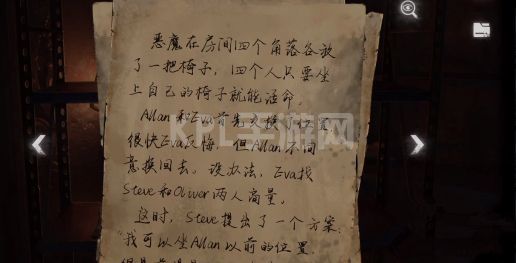 恶魔在房间四个角落各放
了一把椅子，四个人只要坐
上自己的椅子就能活命。
Allan和Eva首先交换了位置
很快Eva反悔，但Allan不同
意换回去。没办法，Eva找
Steve和Oliver两人商量。
这时，Steve提出了一个方案:
"我可以坐Allan以前的位置
KFL手游网